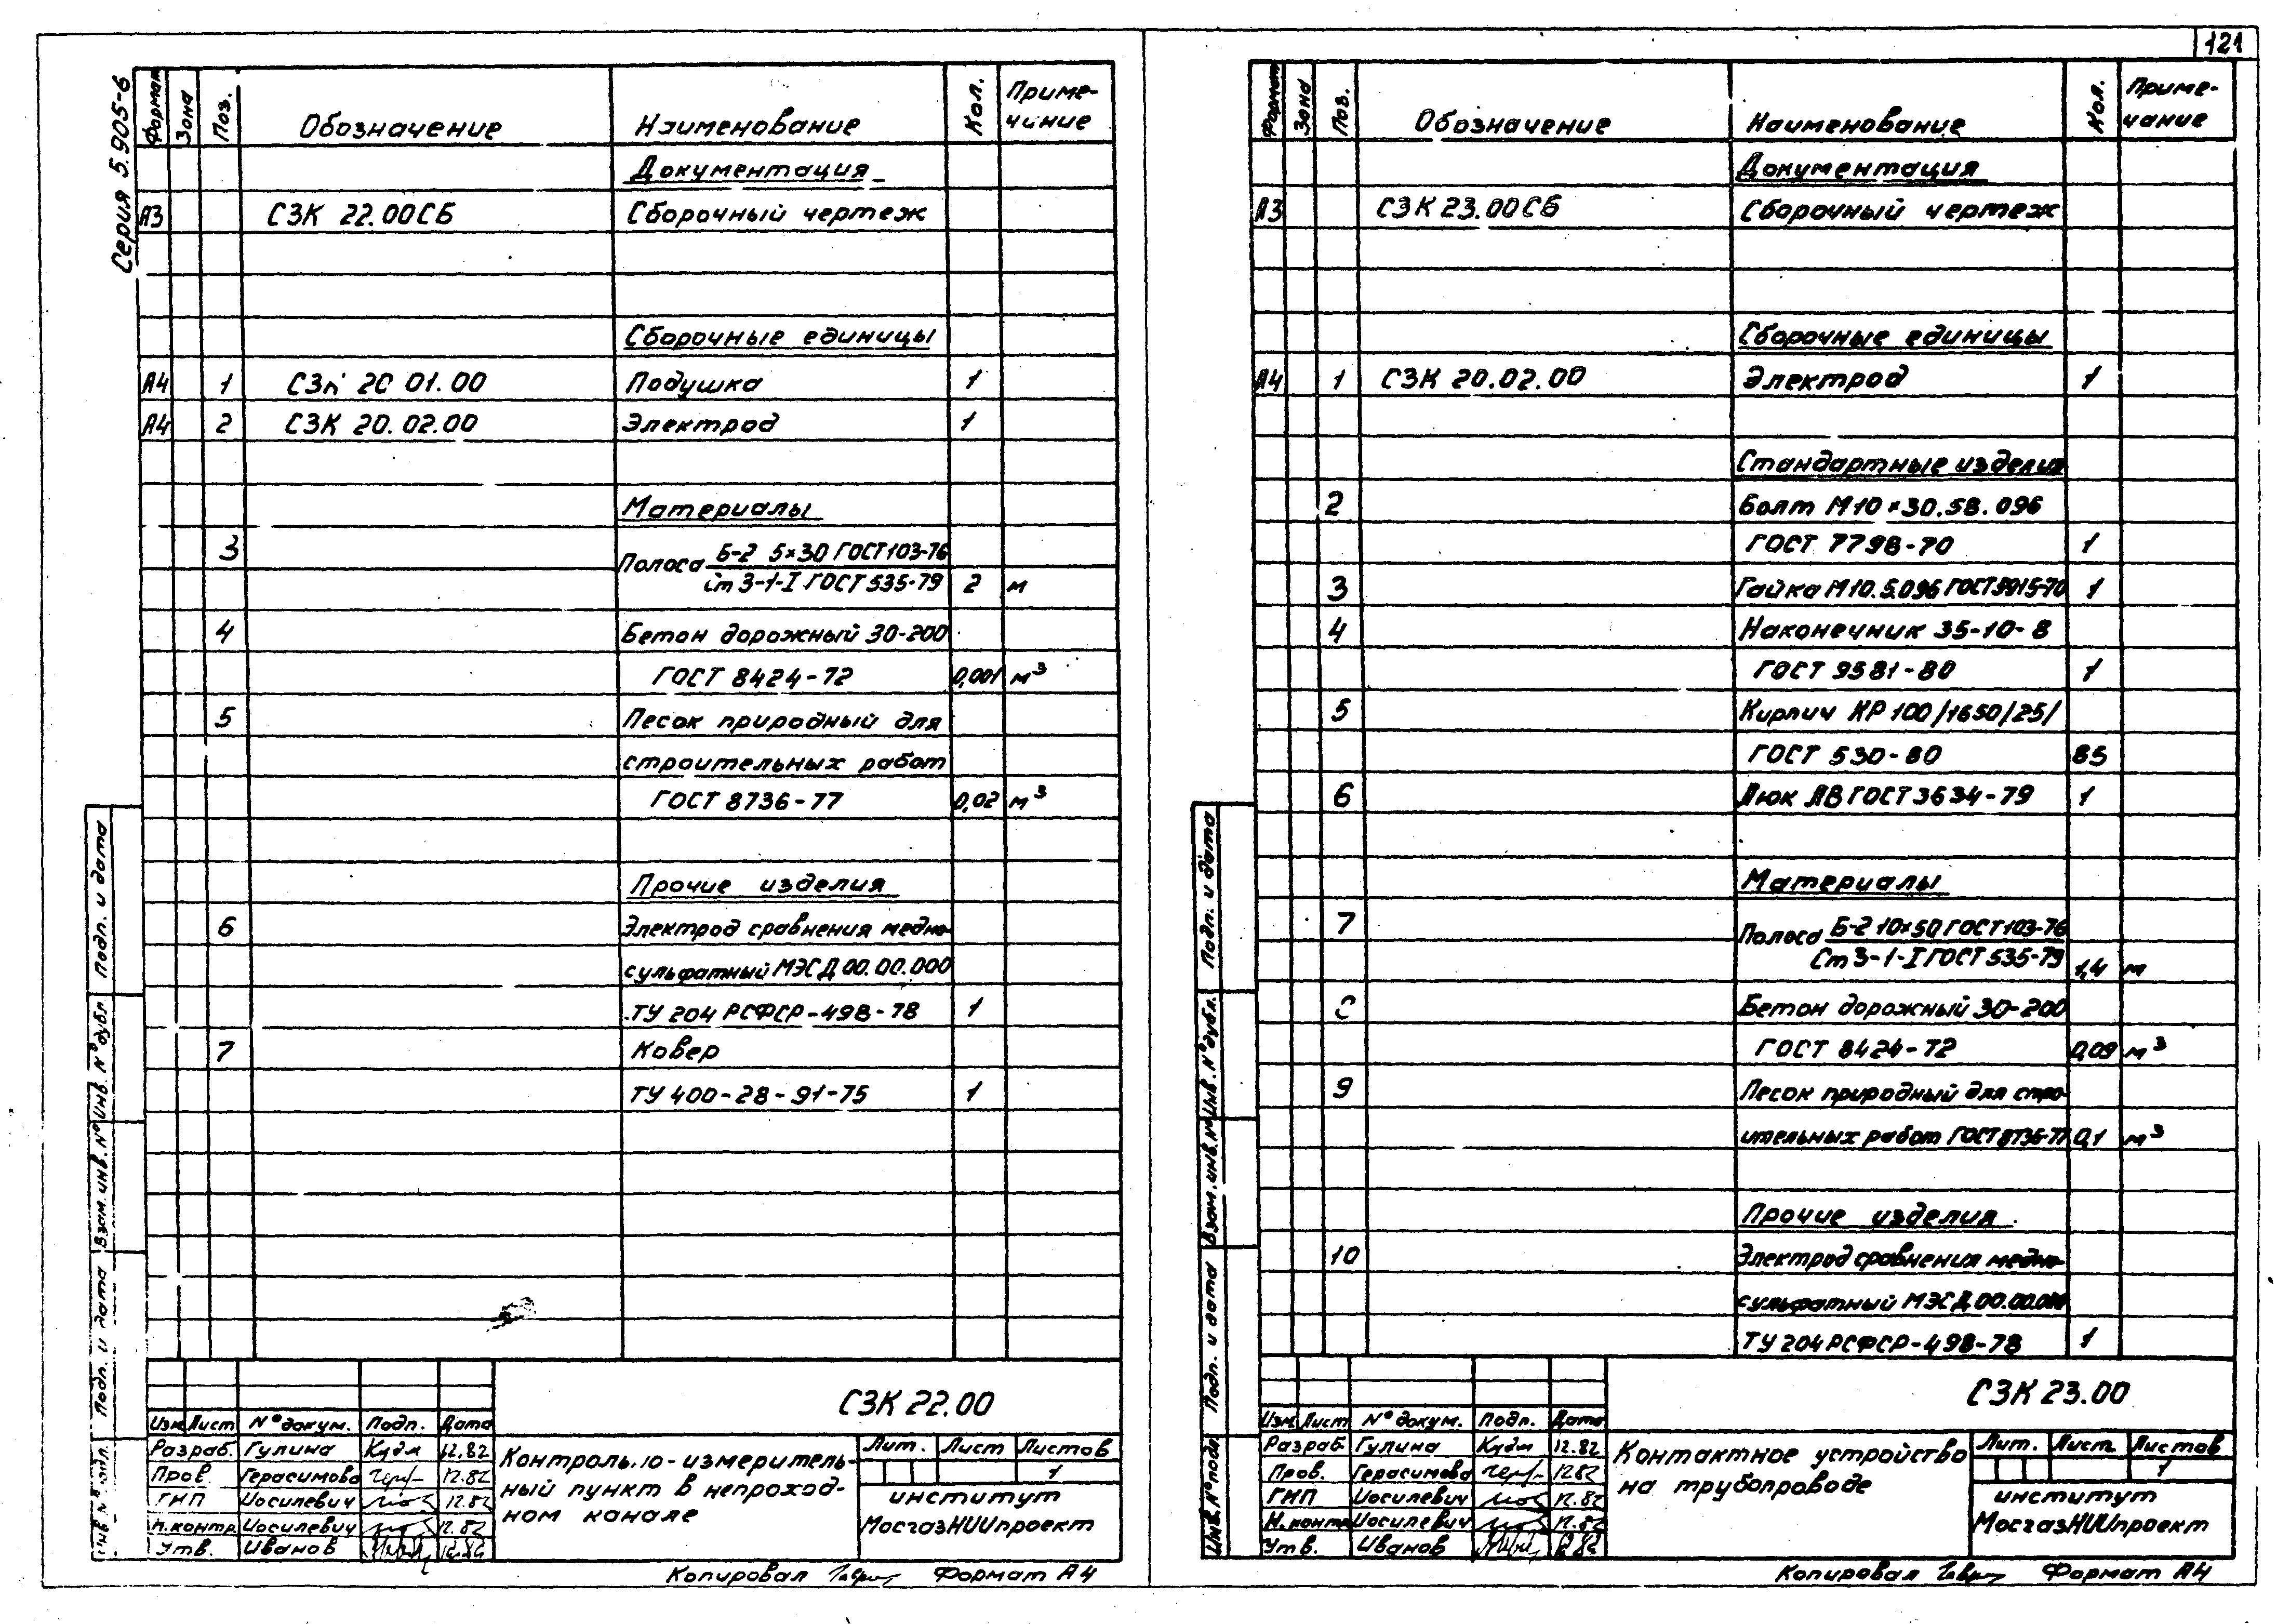 121
Серия 5.905-6
Формат Зона Поз. Обозначение Наименование Кол. Приме-
чание
Документация
А3 СЗК 22.00СБ Сборочный чертеж
Сборочные единицы
А4 1 СЗК 20 01.00 Подушка 1
А4 2 СЗК 20.02.00 Электрод 1
Материалы
3 Полоса Б-2 5×30 ГОСТ 103-76
Ст 3-1-I ГОСТ 535-79 2 м
4 Бетон дорожный 30-200
ГОСТ 8424-72 0,001 м³
5 Песок природный для
строительных работ
ГОСТ 8736-77 0,02 м³
Прочие изделия
6 Электрод сравнения медно-
сульфатный МЭСД 00.00.000
ТУ 204 РСФСР-498-78 1
7 Ковер
ТУ 400-28-91-75 1
Подп. и дата
Инв. № дубл
Взам. инв. №
Подп. и дата
Инв № подл.
СЗК 22.00
Изм Лист № докум. Подп. Дата
Разраб. Гулина 12.82
Пров. Герасимова 12.82
ГИП Иосилевич 12.82
Н.контр. Иосилевич 12.82
Утв. Иванов 12.82
Контрольно-измеритель-
ный пункт в непроход-
ном канале
Лит. Лист Листов
1
институт
МосгазНИИпроект
Копировал Формат А4
Формат Зона Поз. Обозначение Наименование Кол. Приме-
чание
Документация
А3 СЗК 23.00СБ Сборочный чертеж
Сборочные единицы
А4 1 СЗК 20.02.00 Электрод 1
Стандартные изделия
2 Болт М10×30.58.096
ГОСТ 7798-70 1
3 Гайка М10.5.096 ГОСТ 5915-70 1
4 Наконечник 35-10-8
ГОСТ 9581-80 1
5 Кирпич КР 100/1650/25/
ГОСТ 530-80 85
6 Люк ЛВ ГОСТ 3634-79 1
Материалы
7 Полоса Б-2 10×50 ГОСТ 103-76
Ст 3-1-I ГОСТ 535-79 1,4 м
8 Бетон дорожный 30-200
ГОСТ 8424-72 0,09 м³
9 Песок природный для стро-
ительных работ ГОСТ 8736-77 0,1 м³
Прочие изделия
10 Электрод сравнения медно-
сульфатный МЭСД 00.00.000
ТУ 204 РСФСР-498-78 1
Подп. и дата
Инв. № дубл.
Взам. инв. №
Подп. и дата
Инв. № подл
СЗК 23.00
Изм Лист № докум. Подп. Дата
Разраб Гулина 12.82
Пров. Герасимова 12.82
ГИП Иосилевич 12.82
Н.контр Иосилевич 12.82
Утв. Иванов 12.82
Контактное устройство
на трубопроводе
Лит. Лист Листов
1
институт
МосгазНИИпроект
Копировал Формат А4